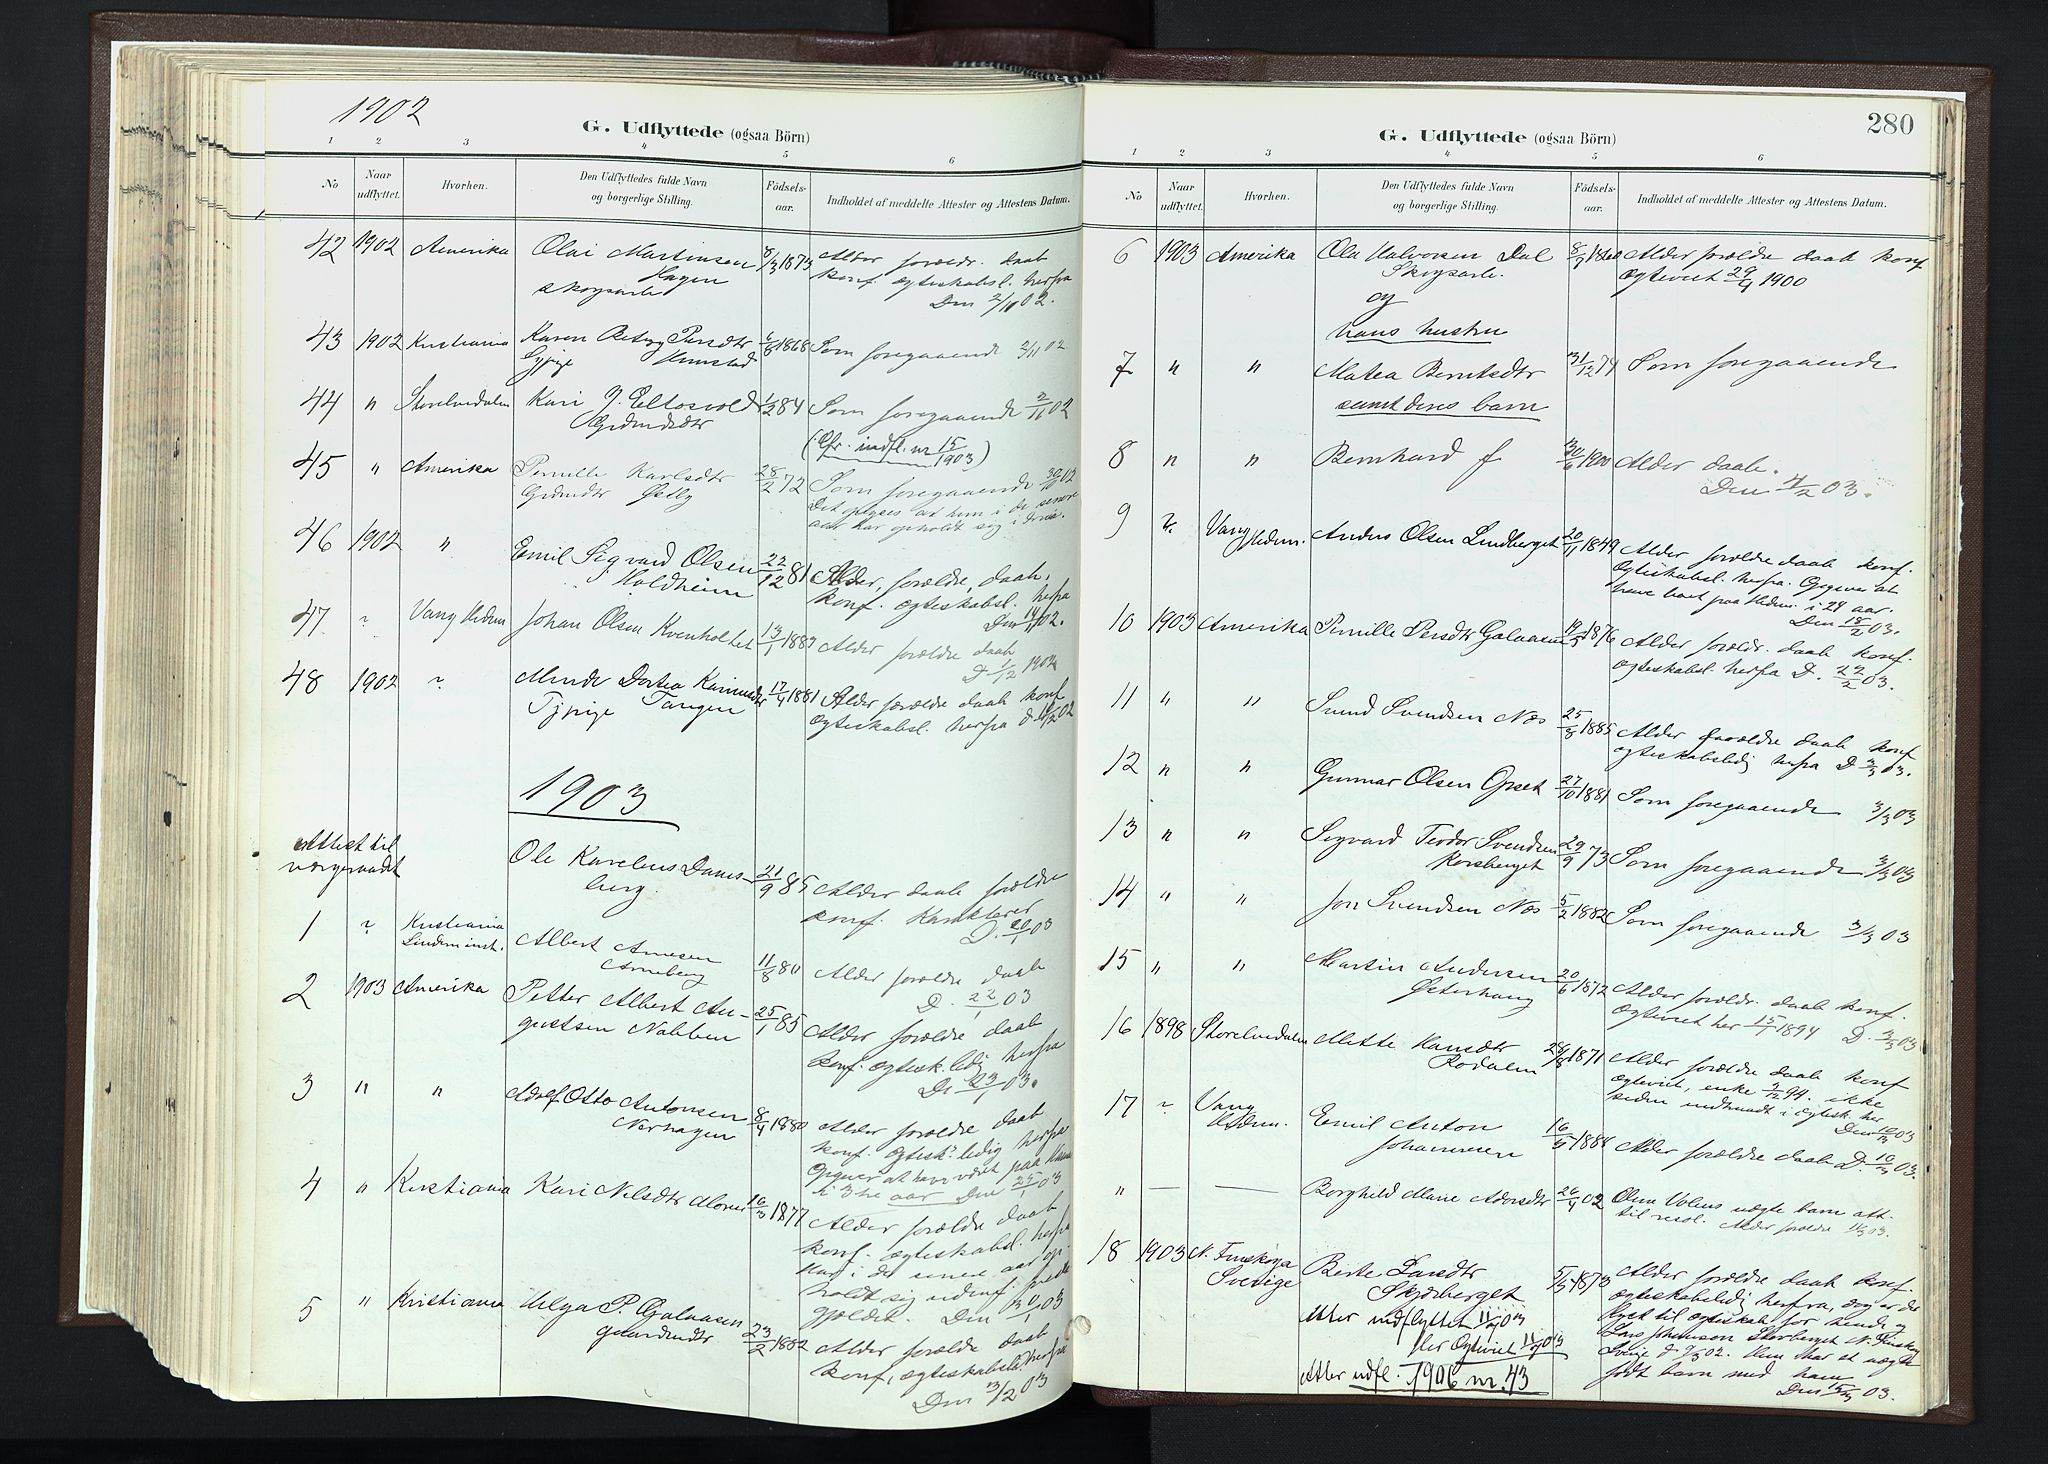 1902
G. Udflyttede (ogsaa Börn)
1 2 3 4 5 6
No
Naar udflyttet.
Hvorhen.
Den Udflyttedes fulde Navn
og borgerlige Stilling.
Födsels-
aar.
Indholdet af meddelte Attester og Attestens Datum.
42 1902 Amerika Olai Martinsen 8/3 1873 Alder foreldr. daab
Hagen konf. ægteskabsl. herfra
skogsarb Den 2/11 02.
43 1902 Kristiania Karen 6/8 1868 Som foregaaende 2/11 02
44 " Storelvedalen Kari J. 1/2 84 Som foregaaende 2/11 02
Grdmdsdtr
(Cfr. indfl. nr 15/1903)
45 " Amerika Pernille Karlsdtr 28/2 72 Som foregaaende 30/10 02
Grdmdtr Østby Det opgives at hun i de senere
aar har opholdt sig i
46 1902 " Emil Sigvard Olsen 22/12 81 Alder, forældre, daab,
Holdheim konf. ægteskabsl. herfra
Den 14/11 02.
47 " Vang Hedm Johan Olsen Kvenholtet 13/1 1883 Alder forældre daab
D. 1/12 1902
48 1902 " Dortea 17/4 1881 Alder forældre daab konf
Tjpige Tangen ægteskabsl. herfra d. 02
1903
Attest til
værgeraadet
Ole Karelius Dams- 21/9 85 Alder daab forældre
berg. konf. Karakterer
D. 20/1 03
1 " Kristiania Albert Arnesen 11/8 80 Alder forældre daab
Arneberg D. 22/1 03
2 1903 Amerika Petter Albert Au- 25/1 85 Alder forældre daab
gustsen Nabben konf. ægtesk. ledig herfra
D. 23/1 03.
3 " " Adolf Otto Antonsen 8/4 1880 Alder forældre daab
Nerhagen konf. ægtesk. ledig herfra
Opgiver at have været paa
i 3 aar Den 24/1 03
4 " Kristiania Kari Nilsdtr Moren 16/3 1877 Alder forældre daab
konf. ægteskabsl. herfra
Har i det senere aar op-
holdt sig udenf. præste
gjeldet. Den 30/1 03
5 " Kristiania Helga P. Galaasen 23/2 1882 Alder forældre daab
gaardmdtr konf, ægteskabsledig herfra
Den 3/2 03
280
G. Udflyttede (ogsaa Börn)
1 2 3 4 5 6
No
Naar
udflyttet.
Hvorhen.
Den Udflyttedes fulde Navn
og borgerlige Stilling.
Födsels-
aar.
Indholdet af meddelte Attester og Attestens Datum.
6 1903 Amerika Ola Halvorsen Dal 8/7 1860 Alder forældre daab konf
Skogsarb. Ægteviet 29/4 1900
og
hans hustru
7 " " Matea Berntsdtr 31/12 74 Som foregaaende
samt deres barn
8 " " Bernhard f 30/6 1900 Alder daab.
Den 4/2 03.
9 " Vang Hedm. Anders Olsen Lindberget 20/11 1849 Alder forældre daab konf.
Ægteskabsl. herfra. Opgiver at
have boet paa Hedm. i 24 aar.
Den 18/2 03.
10 1903 Amerika Pernille Persdtr Galaasen 19/5 1876 Alder foreldr. daab konf.
ægteskabsl. herfra D. 22/2 03.
11 " " Svend Svendsen Næs 25/8 1885 Alder forældre daab konf
ægteskabsledig herfra D 3/3 03.
12 " " Gunnar Olsen Opset 27/10 1881 Som foregaaende 3/3 03
13 " " Sigvard Teodor Svendsen 29/9 73 Som foregaaende 3/3 03
Korsberget
14 " " Jon Svendsen Næs 5/2 1882 Som foregaaende 3/3 03
15 " " Martin Andersen 20/6 1872 Alder foreldr. daab konf.
Østerhaug Ægteviet her 15/7 1894 D. 3/3 03
16 1898 Storelvedalen Mette Hansdtr 28/8 1871 Alder forældre daab konf
Rodalen ægteviet, enke 2/2 94. ikke
siden indtraadt i ægtesk. her
Den 10/3 03
17 " Vang Hedm. Emil Anton 16/4 1888 Alder forældre daab D. 10/3 03.
Johannesen
" — — Borghild Marie Adorsdtr 26/4 02 Oline Volens uægte barn att.
til resol. Alder forældre 11/3 03.
18 1903 N. Finskoga Berte Larsdtr 5/3 1873 Alder forældre daab konf.
Sverige Skjæsberget ægteskabsledig herfra, dog er der
Atter indflyttet 11/ 03 lyst til ægteskab for hende og
her Ægteviet 11/ 03 Lars Johanson N. Finskog
Atter udfl. 1906 nr. 43 Sverie d 02. Hun har et uægte
født barn med ham
Den 15/3 03.